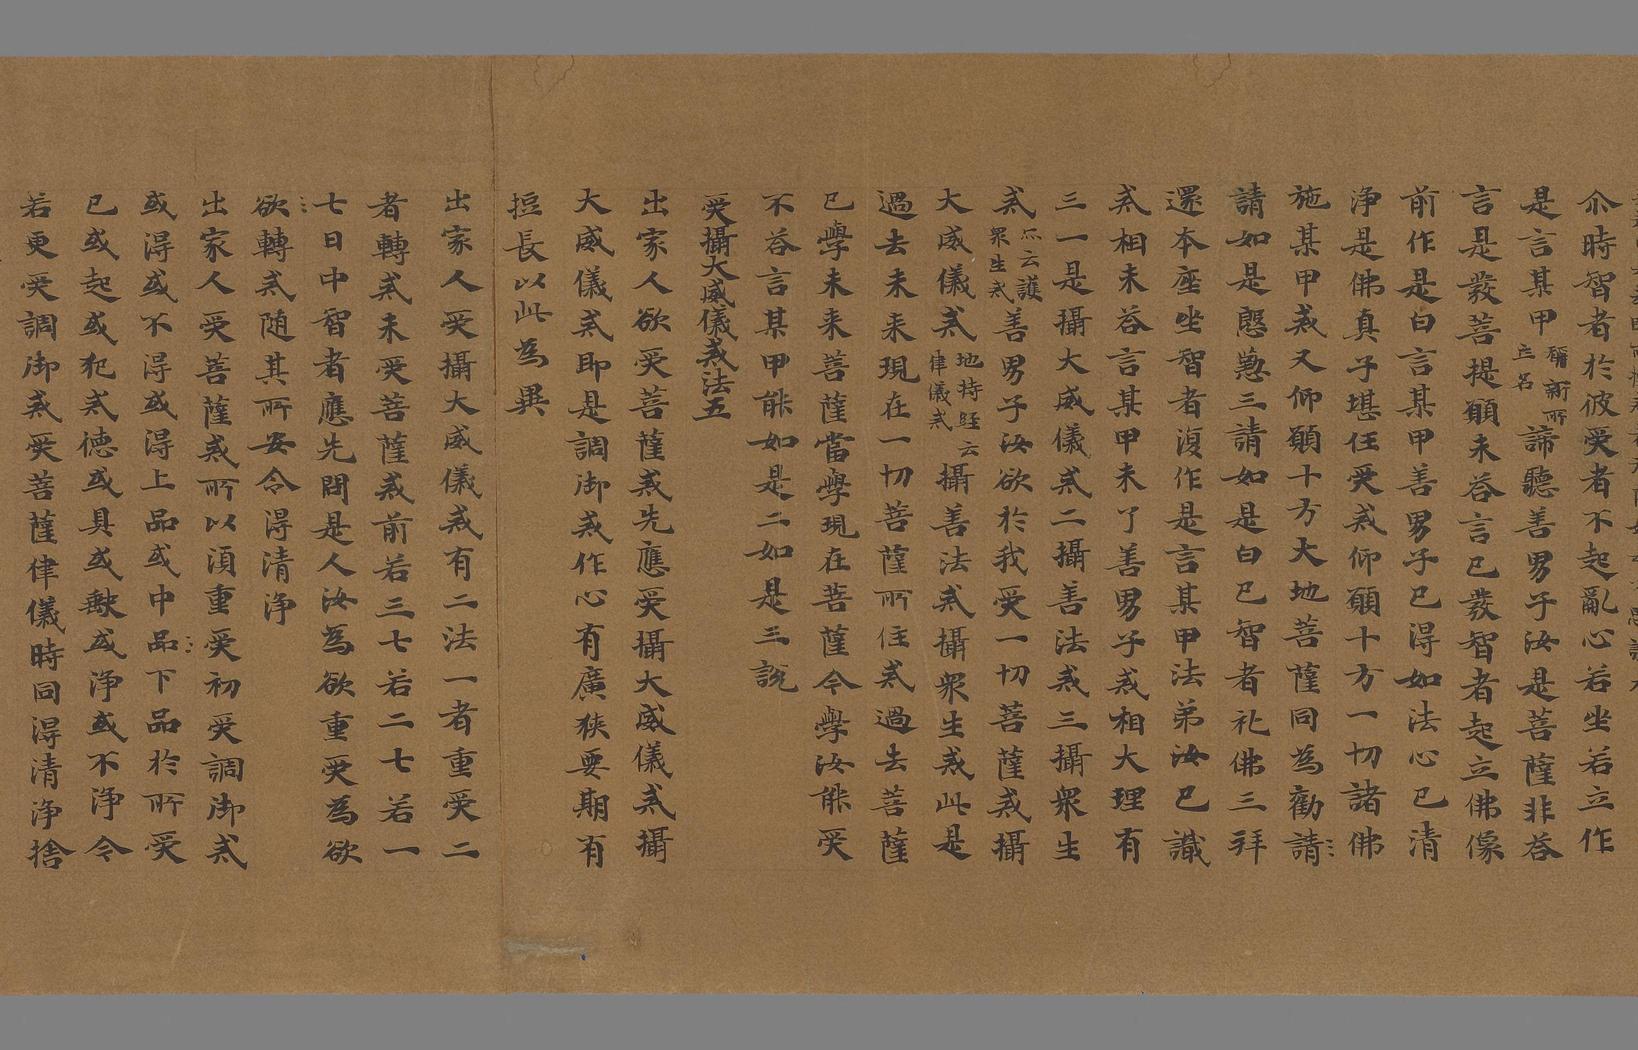 尒時智者於彼受者不起亂心若坐若立作
是言某甲稱新所立名諦聽善男子汝是菩薩非荅
言是發菩提願未荅言已發智者起立佛像
前作是白言某甲善男子已得如法心已清
淨是佛真子堪任受戒仰願十方一切諸佛
施某甲戒又仰願十方大地菩薩同為勸請
請如是慇懃三請如是白已智者礼佛三拜
還本座坐智者復作是言某甲法弟汝已識
戒相未荅言某甲未了善男子戒相大理有
三一是攝大威儀戒二攝善法戒三攝衆生
戒亦云護衆生戒善男子汝欲於我受一切菩薩戒攝
大威儀戒地持經云律儀戒攝善法戒攝衆生戒此是
過去未来現在一切菩薩所住戒過去菩薩
已學未来菩薩當學現在菩薩今學汝能受
不荅言某甲能如是二如是三說
受攝大威儀戒法五
出家人欲受菩薩戒先應受攝大威儀戒攝
大威儀戒即是調御戒作心有廣狹要期有
短長以此為異
出家人受攝大威儀戒有二法一者重受二
者轉戒未受菩薩戒前若三七若二七若一
七日中智者應先問是人汝為欲重受為欲
欲轉戒随其所安令得清淨
出家人受菩薩戒所以須重受初受調御戒
或得或不得或得上品或中品下品於所受
已或起或犯戒德或具或缺或淨或不淨令
若更受調御戒受菩薩律儀時同得清淨捨